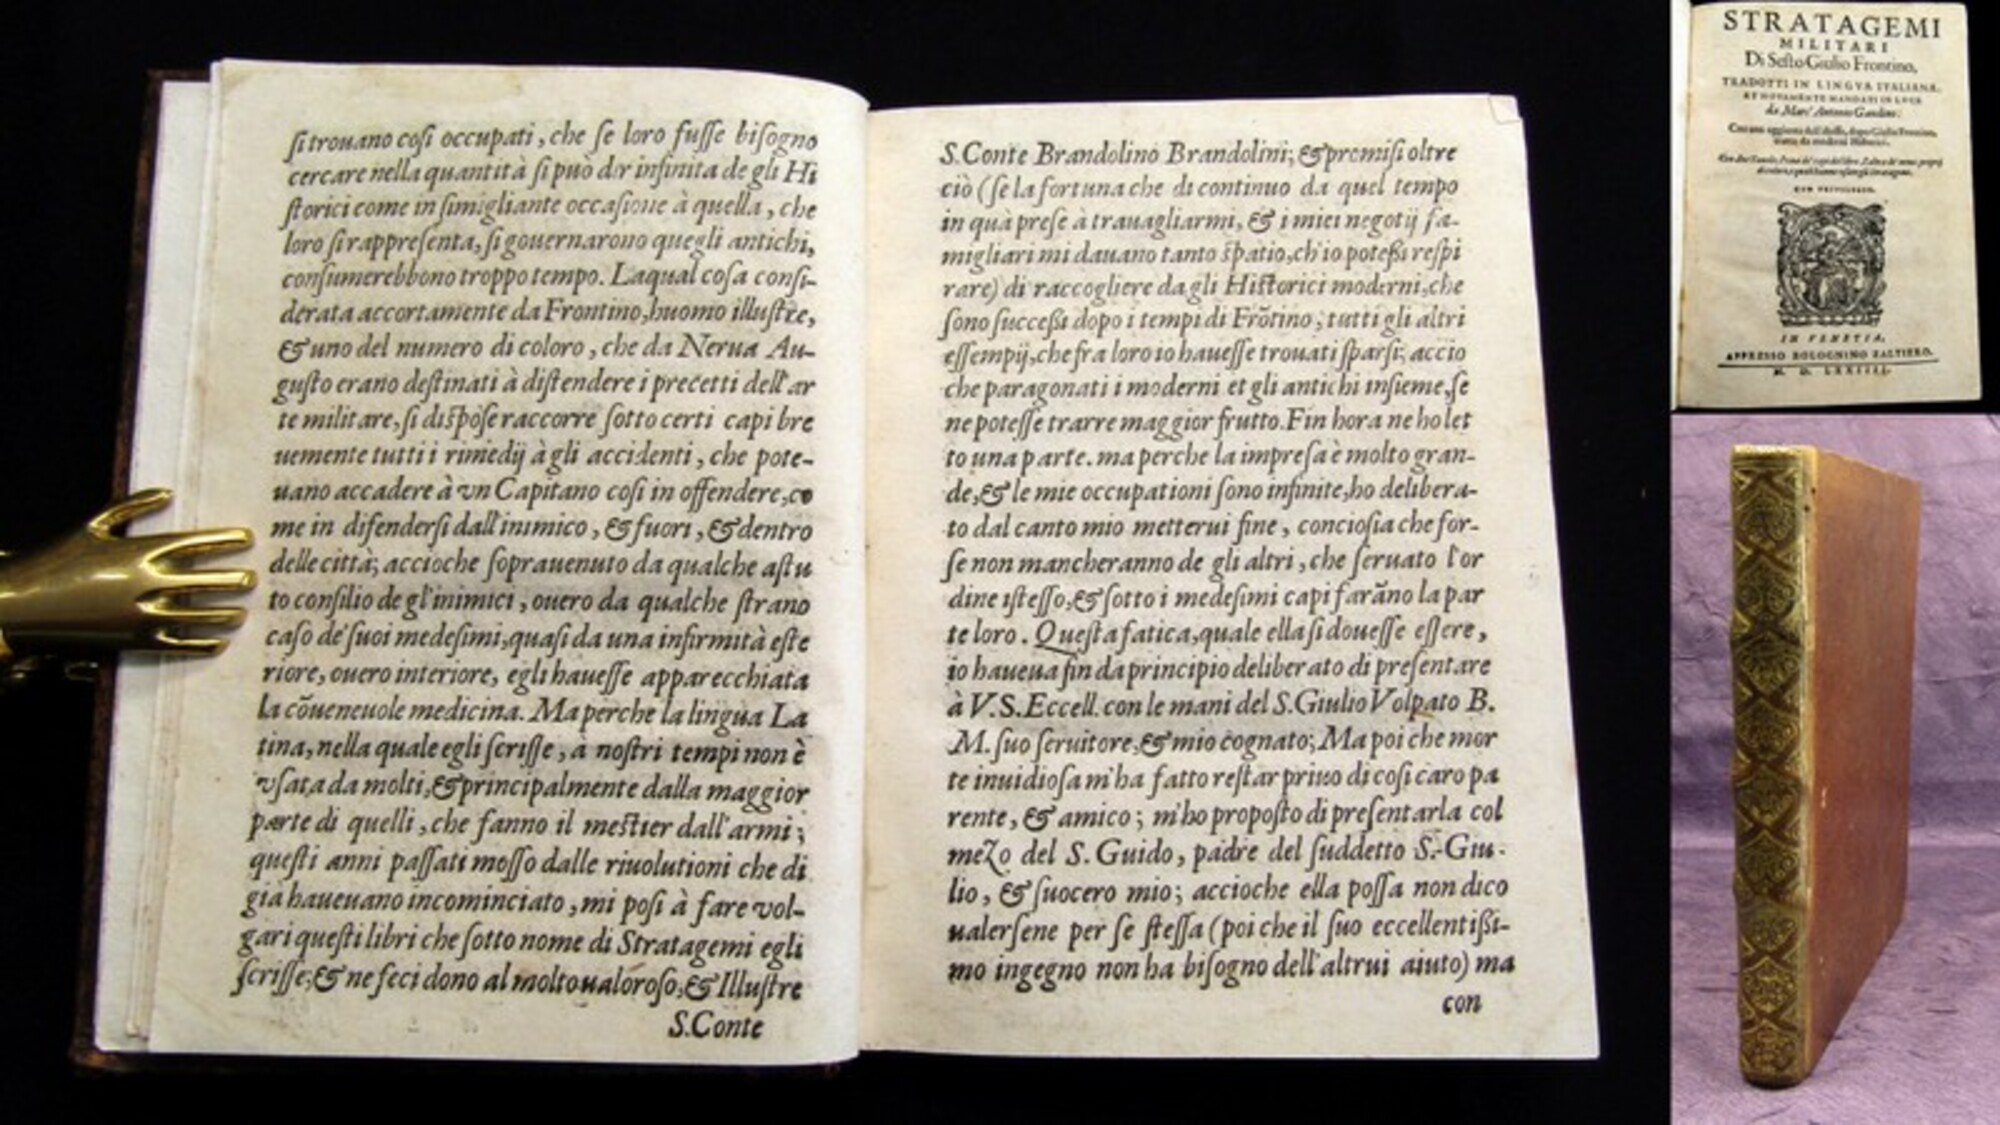 si trouano cosi occupati, che se loro fusse bisogno
cercare nella quantità si può dir infinita de gli Hi
storici come in simigliante occasione à quella, che
loro si rappresenta, si gouernarono quegli antichi,
consumerebbono troppo tempo. Laqual cosa consi-
derata accortamente da Frontino, huomo illustre,
& uno del numero di coloro, che da Nerua Au-
gusto erano destinati à distendere i precetti dell'ar
te militare, si dispose raccorre sotto certi capi bre
uemente tutti i rimedij à gli accidenti, che pote-
uano accadere à vn Capitano cosi in offendere, co
me in difendersi dall'inimico, & fuori, & dentro
delle città; accioche soprauenuto da qualche astu
to consilio de gl'inimici, ouero da qualche strano
caso de' suoi medesimi, quasi da una infirmità este
riore, ouero interiore, egli hauesse apparecchiata
la cõueneuole medicina. Ma perche la lingua La
tina, nella quale egli scrisse, a nostri tempi non è
vsata da molti, & principalmente dalla maggior
parte di quelli, che fanno il mestier dall'armi;
questi anni passati mosso dalle riuolutioni che di
già haueuano incominciato, mi posi à fare vol-
gari questi libri che sotto nome di Stratagemi egli
scrisse; & ne feci dono al molto ualoroso, & Illustre
S. Conte
S. Conte Brandolino Brandolini; & promisi oltre
ciò (se la fortuna che di continuo da quel tempo
in quà prese à trauagliarmi, & i miei negotij fa-
migliari mi dauano tanto spatio, ch'io potessi respi
rare) di raccogliere da gli Historici moderni, che
sono successi dopo i tempi di Frõtino, tutti gli altri
essempij, che fra loro io hauesse trouati sparsi; accio
che paragonati i moderni et gli antichi insieme, se
ne potesse trarre maggior frutto. Fin hora ne ho let
to una parte. ma perche la impresa è molto gran-
de, & le mie occupationi sono infinite, ho delibera-
to dal canto mio metterui fine, conciosia che for-
se non mancheranno de gli altri, che seruato l'or
dine istesso, & sotto i medesimi capi farãno la par
te loro. Questa fatica, quale ella si douesse essere,
io haueua fin da principio deliberato di presentare
à V.S. Eccell. con le mani del S. Giulio Volpato B.
M. suo seruitore, & mio cognato; Ma poi che mor
te inuidiosa m'ha fatto restar priuo di cosi caro pa
rente, & amico; m'ho proposto di presentarla col
mezo del S. Guido, padre del suddetto S. Giu-
lio, & suocero mio; accioche ella possa non dico
ualersene per se stessa (poi che il suo eccellentissi-
mo ingegno non ha bisogno dell'altrui aiuto) ma
con
STRATAGEMI
MILITARI
Di Sesto Giulio Frontino,
TRADOTTI IN LINGVA ITALIANA,
ET NOVAMENTE MANDATI IN LVCE
da Marc' Antonio Gandino:
CON PRIVILEGIO.
IN VENETIA,
APPRESSO BOLOGNINO ZALTIERO,
M. D. LXXIIII.